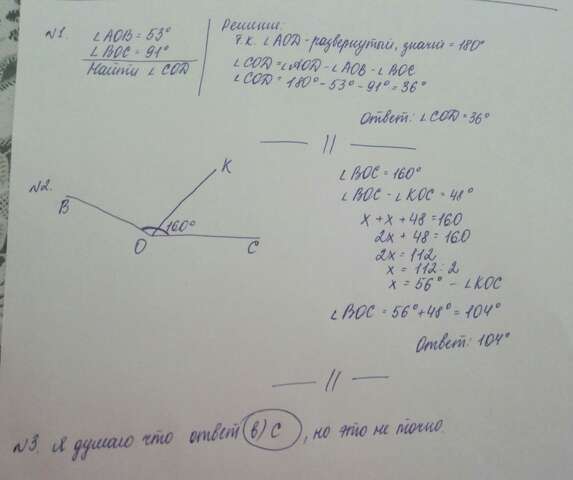 №1. ∠AOB = 53°
∠BOC = 91°
Найти ∠COD
Решение:
Т.к. ∠AOD - развернутый, значит = 180°
∠COD = ∠AOD - ∠AOB - ∠BOC
∠COD = 180° - 53° - 91° = 36°
Ответ: ∠COD = 36°
— || —
№2.
B
K
160°
O
C
∠BOC = 160°
∠BOC - ∠KOC = 48°
x + x + 48 = 160
2x + 48 = 160
2x = 112
x = 112 : 2
x = 56° - ∠KOC
∠BOC = 56° + 48° = 104°
Ответ: 104°
— || —
№3. Я думаю что ответ в) C, но это не точно.